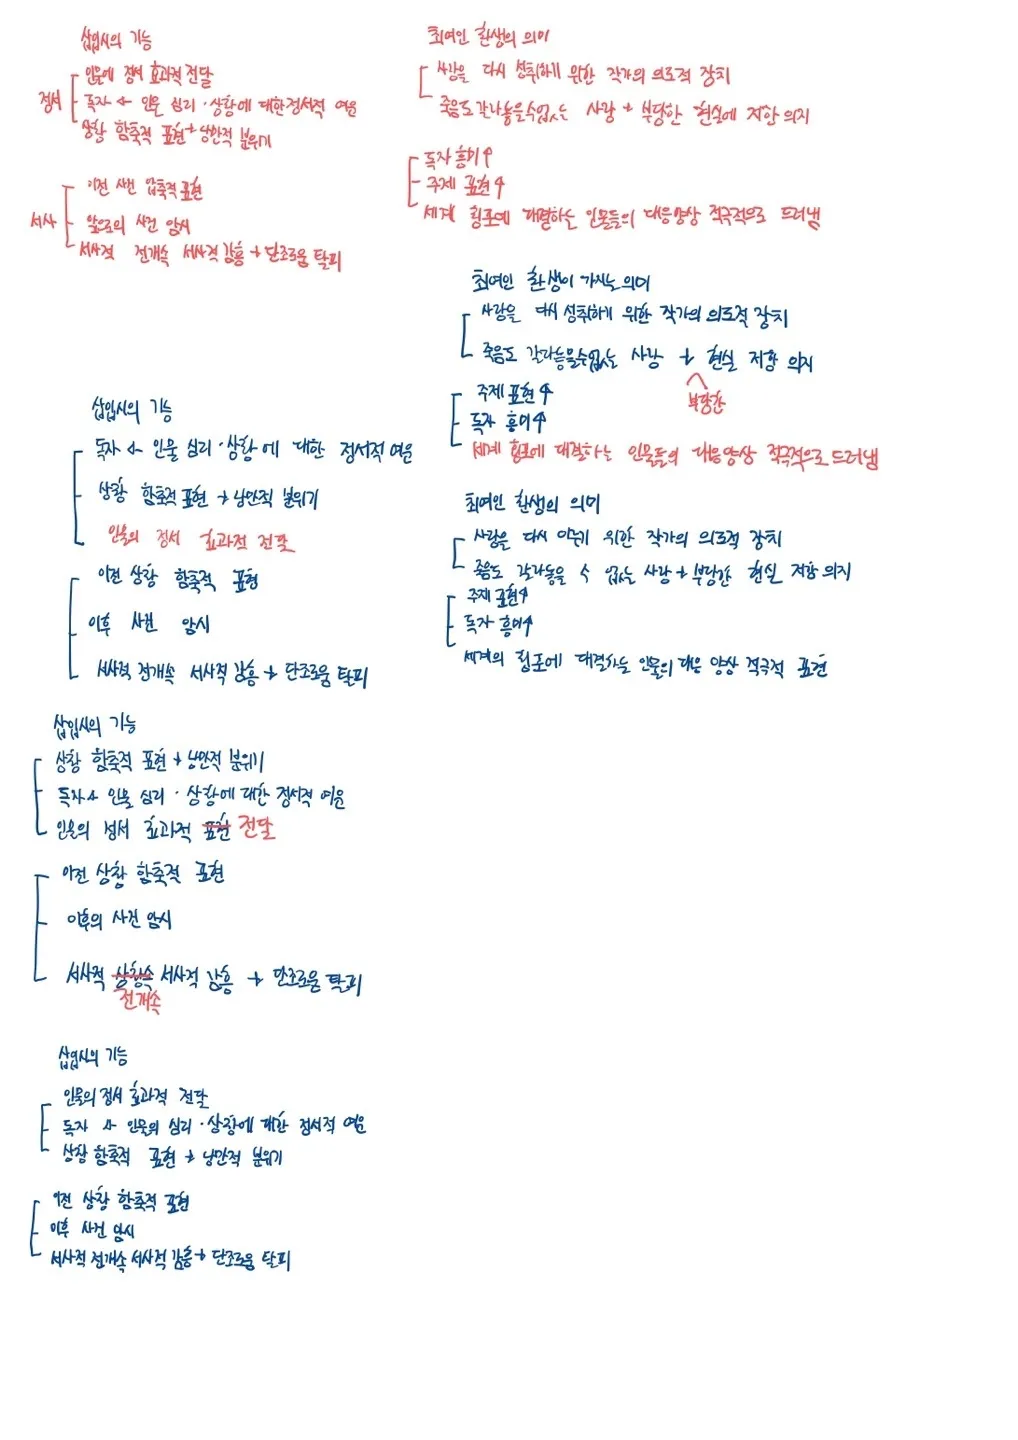 삽입시의 기능
정서
인물에 정서 효과적 전달
독자 ← 인물 심리·상황에 대한 정서적 여운
상황 함축적 표현 + 낭만적 분위기
서사
이전 사건 압축적 표현
앞으로의 사건 암시
서사적 전개속 서사적 감흥 → 단조로움 탈피
최여인 환생의 의미
사랑을 다시 성취하기 위한 작가의 의도적 장치
죽음도 갈라놓을수없는 사랑 + 부당한 현실에 저항 의지
독자 흥미↑
주제 표현↑
세계 횡포에 대결하는 인물들의 대응양상 적극적으로 드러냄
최여인 환생이 가지는 의미
사랑을 다시 성취하기 위한 작가의 의도적 장치
죽음도 갈라놓을수없는 사랑 + 현실 저항 의지
부당한
주제 표현↑
독자 흥미↑
세계 횡포에 대결하는 인물들의 대응양상 적극적으로 드러냄
최여인 환생의 의미
사랑을 다시 이루기 위한 작가의 의도적 장치
죽음도 갈라놓을 수 없는 사랑 + 부당한 현실 저항 의지
주제 표현↑
독자 흥미↑
세계의 횡포에 대결하는 인물의 대응 양상 적극적 표현
삽입시의 기능
독자 ← 인물 심리·상황에 대한 정서적 여운
상황 함축적 표현 → 낭만적 분위기
인물의 정서 효과적 전달
이전 상황 함축적 표현
이후 사건 암시
서사적 전개속 서사적 감흥 → 단조로움 탈피
삽입시의 기능
상황 함축적 표현 + 낭만적 분위기
독자 ← 인물 심리·상황에 대한 정서적 여운
인물의 정서 효과적 표현 전달
이전 상황 함축적 표현
이후의 사건 암시
서사적 상황속 서사적 감흥 → 단조로움 탈피
전개속
삽입시의 기능
인물의 정서 효과적 전달
독자 ← 인물의 심리·상황에 대한 정서적 여운
상황 함축적 표현 → 낭만적 분위기
이전 상황 함축적 표현
이후 사건 암시
서사적 전개속 서사적 감흥 → 단조로움 탈피